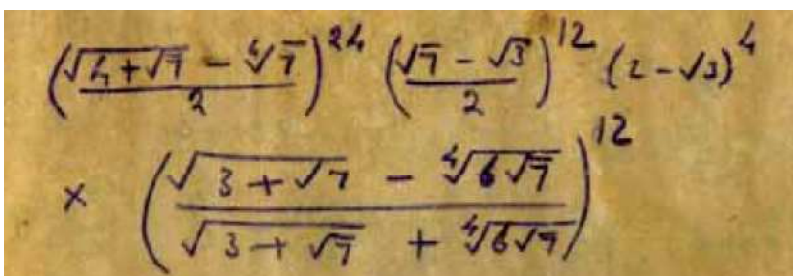 ((√(4+√7) - ⁴√7)/2)²⁴ ((√7 - √3)/2)¹² (2-√3)⁴
× ((√(3+√7) - ⁴√(6√7))/(√(3+√7) + ⁴√(6√7)))¹²